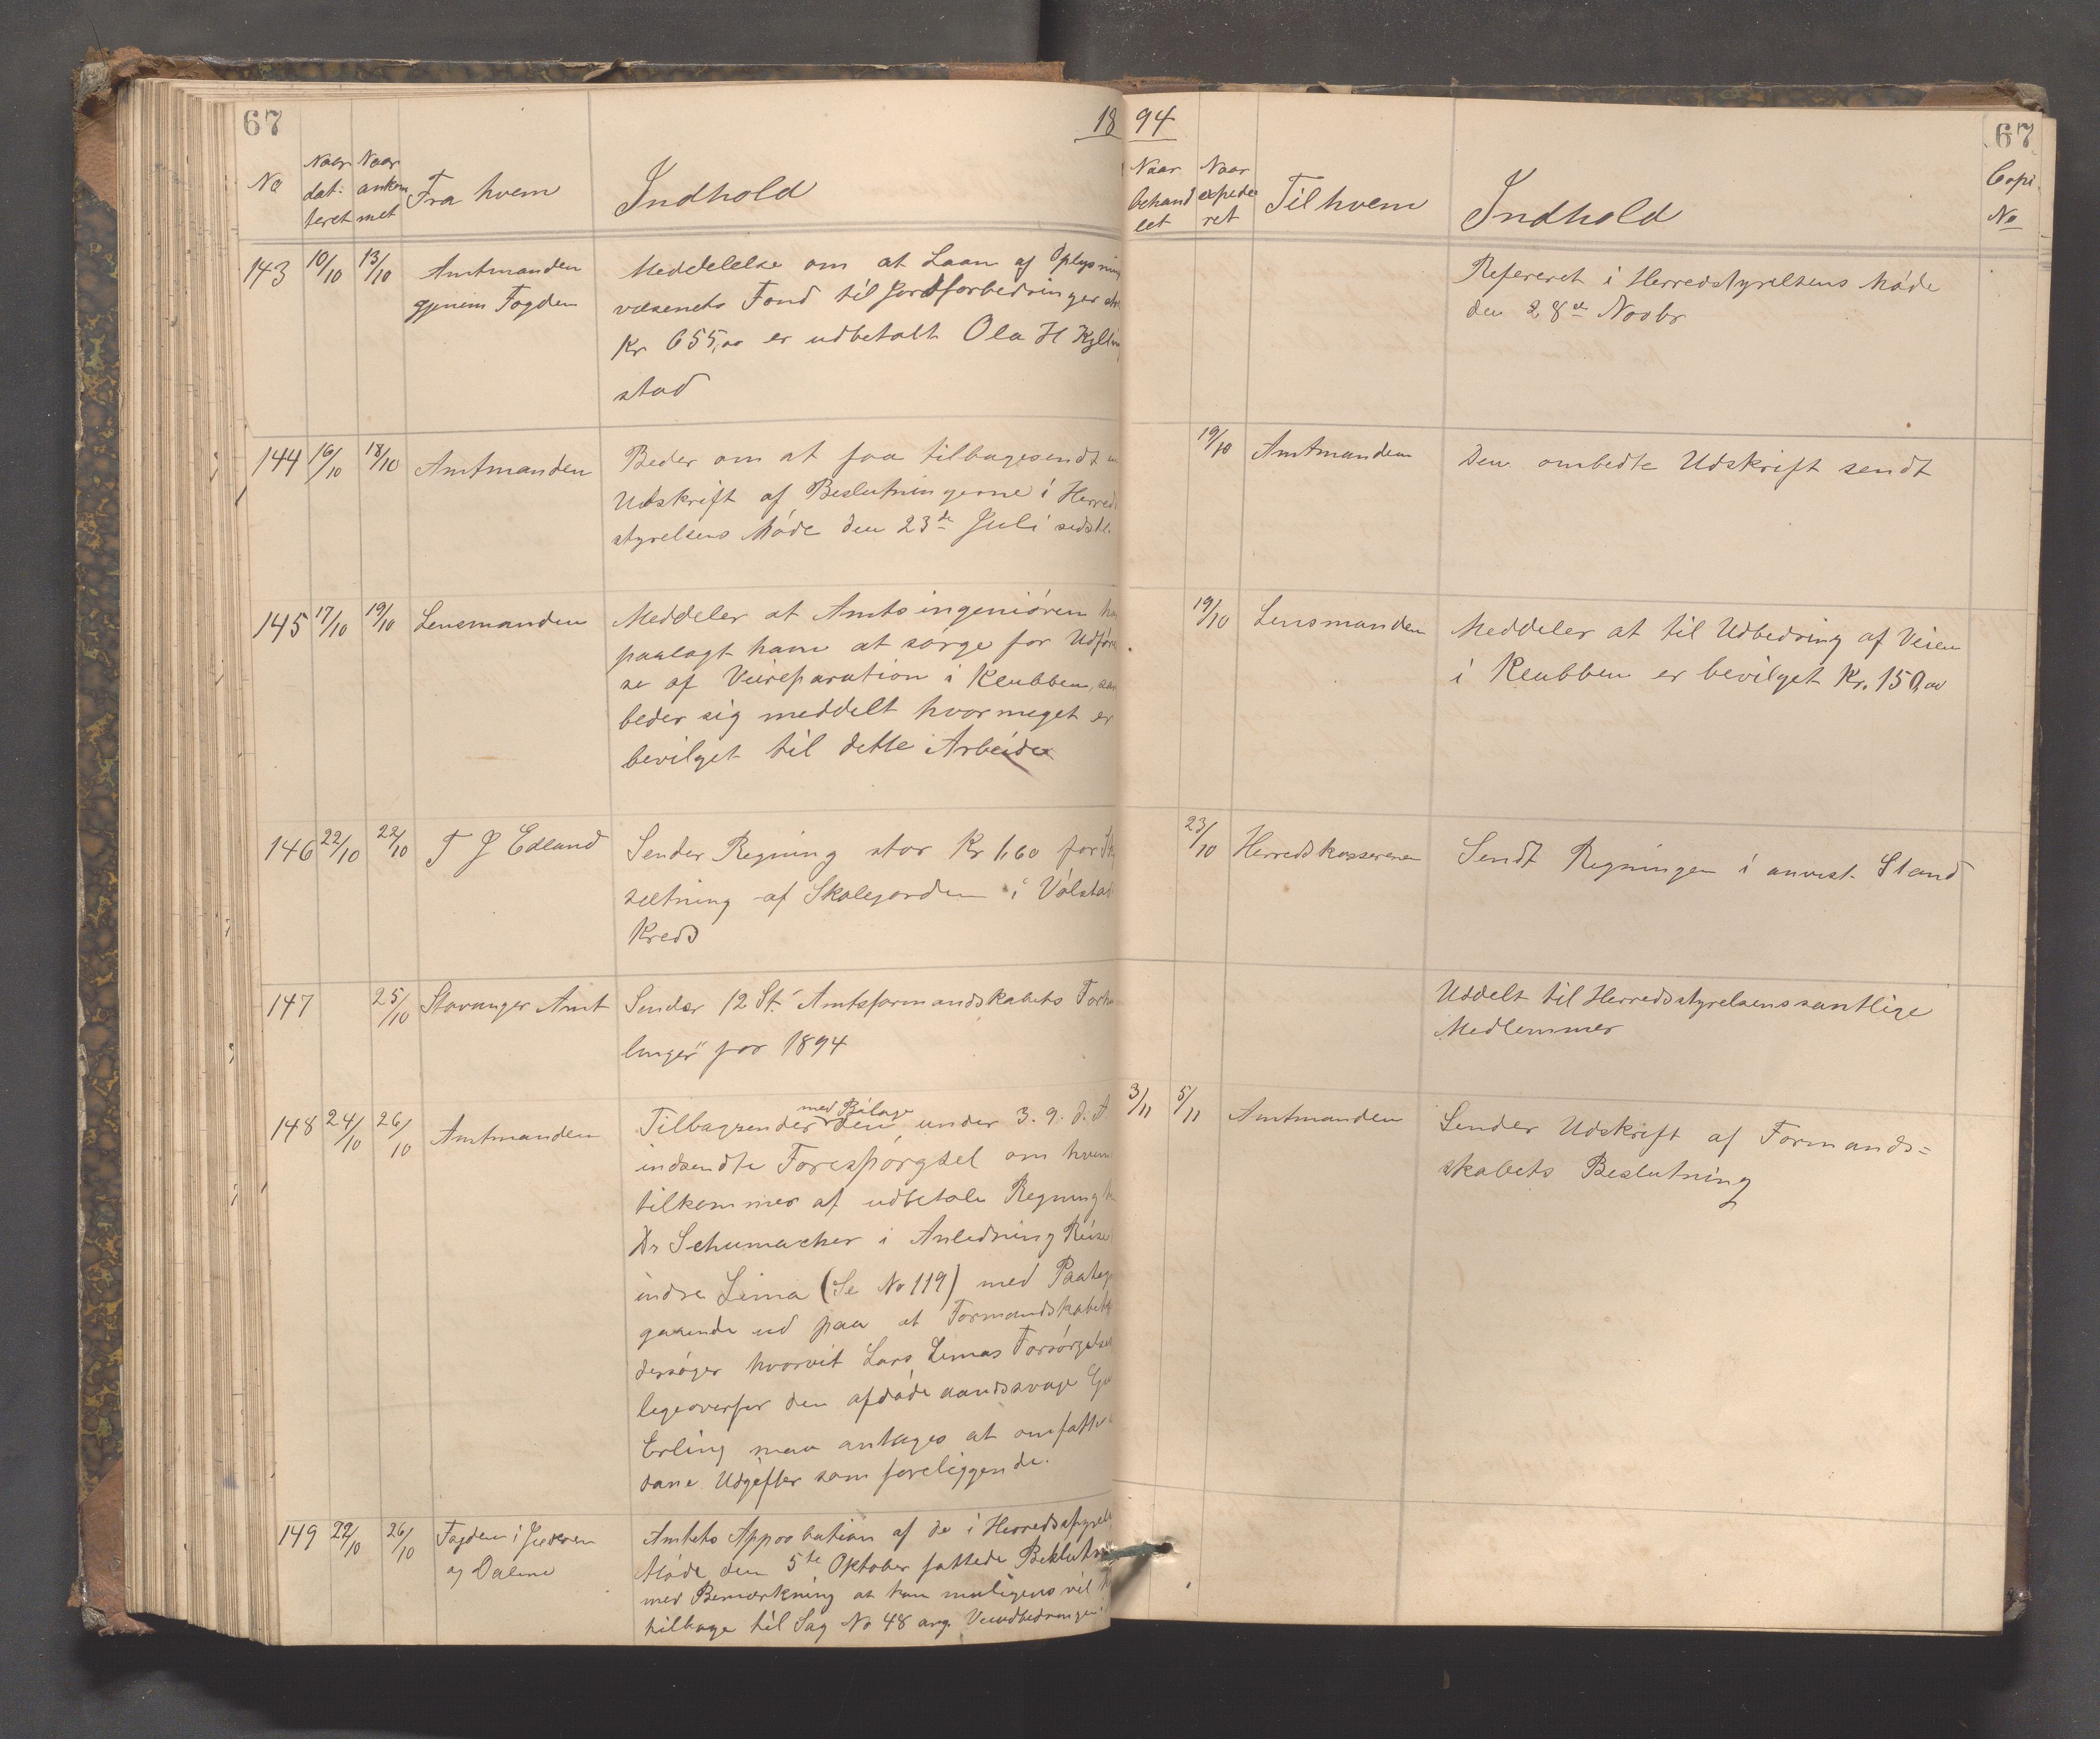 67
18
No
Naar dat: teret
Naar ankom met
Fra hvem
Indhold
143
10/10
13/10
Amtmanden
gjenem Fogden
Meddelelse om at Laan af Oplysnin
væsenets Fond til Jordforbedringer
Kr 655,00 er udbetalt Ola H
stad
144
16/10
18/10
Amtmanden
Beder om at faa tilbagesendt
Udskrift af Beslutningerne i Herreds
styrelsens Møde den 23de Juli sidstl.
145
17/10
19/10
Lensmanden
Meddeler at Amtsingeniøren ha
paalagt ham at sørge for Udføre
se af Veireparation i Klubben,
beder sig meddelt hvormeget er
bevilget til dette Arbeide
146
22/10
22/10
T J Edland
Sender Regning stor Kr 1,60 for
sætning af Skolejorden i Vølstad
Kreds
147
25/10
Stavanger Amt
Sender 12 St. "Amtsformandskabets Forha
linger" for 1894
148
24/10
26/10
Amtmanden
med Bilage
Tilbagsender den under 3.9. d. A
indsendte Forespørgsel om hvem
tilkommer af udbetale Regning
Dr Schumacher i Anledning Reise
indre Lima (Se No 119) med Paateg
gaaende ud paa at Formandskabet
dersøger hvorvit Lars Limas Forsørgelse
ligeoverfor den afdøde aandssvage
Erling maa antages at omfatte
dane Udgifter som foreliggende.
149
22/10
26/10
Fogden i Jæderen
og Dalene
Amtets Approbation af de i Herredsstyrels
Møde den 5te Oktober fattede Beslutni
med Bemærkning at han muligens vil
tilbage til Sag No 48 ang. Veiudbedringen
94
67
Naar behand let
Naar expede ret
Til hvem
Indhold
Copi No
Refereret i Herredstyrelsens Møde
den 28de Novbr
19/10
Amtmanden
Den ombedte Udskrift sendt
19/10
Lensmanden
Meddeler at til Udbedring af Veien
i Klubben er bevilget Kr. 150,00
23/10
Herredskassereren
Sendt Regningen i anvist Stand
Uddelt til Herredsstyrelsens samtlige
Medlemmer
3/11
5/11
Amtmanden
Sender Udskrift af Formands=
skabets Beslutning